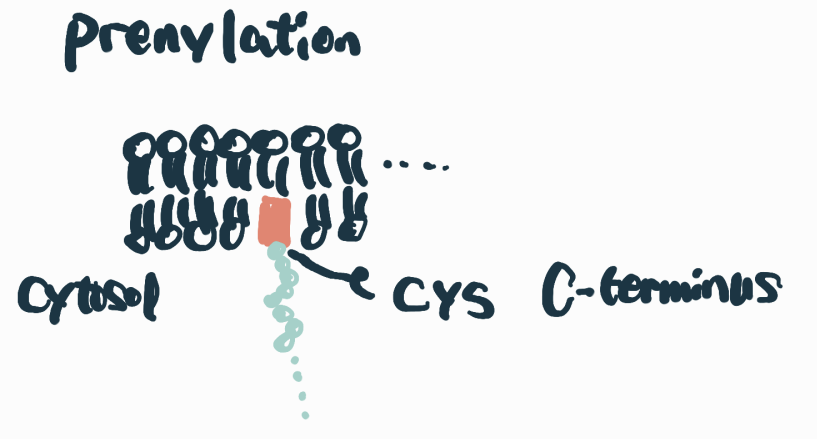 Prenylation
Cytosol
CYS C-terminus